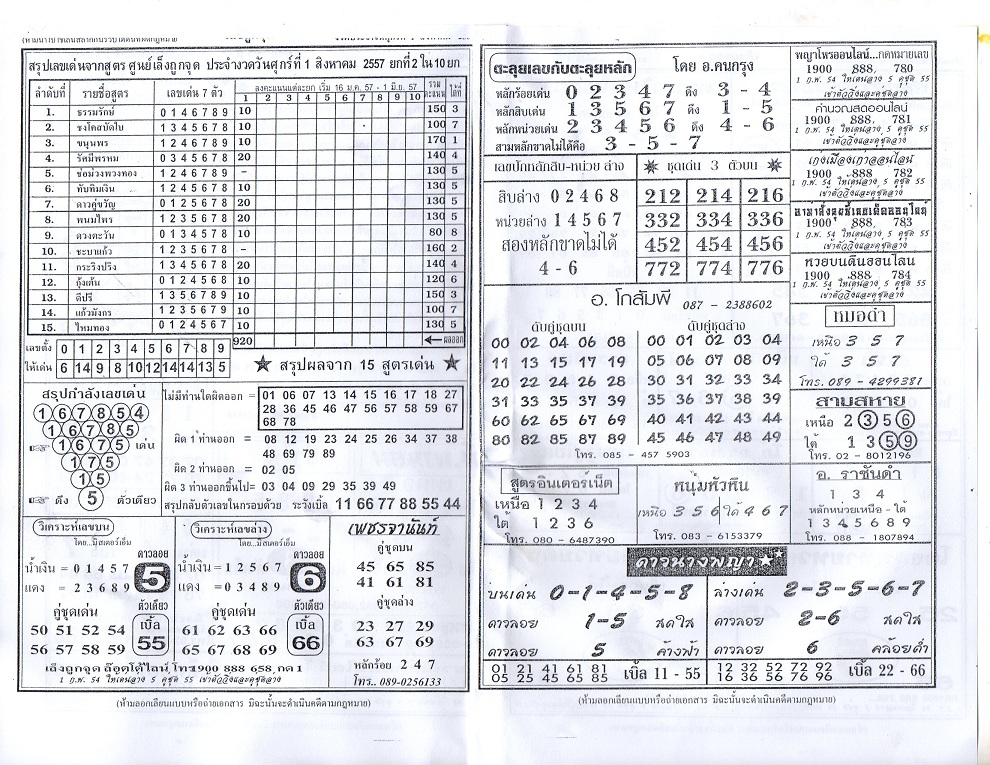 สรุปเลขเด่นจากสูตร ศูนย์เล็งถูกจุด ประจำงวดวันศุกร์ที่ 1 สิงหาคม 2557 ยกที่ 2 ใน 10 ยก
ลำดับที่ รายชื่อสูตร เลขเด่น 7 ตัว ลงคะแนนแต่ละยก เริ่ม 16 ม.ค. 57 - 1 มิ.ย. 57 รวม คะแนน ไพ่ โต๊ก
1 2 3 4 5 6 7 8 9 10
1. ธรรมรักษ์ 0 1 4 6 7 8 9 10 150 3
2. ชงโคสบัดใบ 1 3 4 5 6 7 8 10 100 7
3. ขนุนพร 1 2 4 6 7 8 9 10 170 1
4. รัศมีพรหม 0 3 4 5 6 7 8 20 140 4
5. ช่อม่วงพวงทอง 1 2 4 6 7 8 9 - 130 5
6. ทับทิมเงิน 1 2 4 5 6 7 8 10 130 5
7. ดาวคู่ขวัญ 0 1 2 5 6 7 8 20 130 5
8. พนมไพร 1 2 3 5 6 7 8 20 130 5
9. ดวงตะวัน 0 1 3 4 5 7 8 10 80 8
10. ชะบาแก้ว 1 2 3 5 6 7 8 - 160 2
11. กระริงปริง 1 3 4 5 6 7 8 20 140 4
12. กุ้งเต้น 0 1 2 4 5 6 8 10 120 6
13. ดีปรี 1 3 5 6 7 8 9 10 150 3
14. แก้วมังกร 1 3 5 6 7 8 9 10 100 7
15. ไหมทอง 0 1 2 4 5 6 7 10 130 5
920 ← ผลออก
เลขตั้ง 0 1 2 3 4 5 6 7 8 9
ให้เด่น 6 14 9 8 10 12 14 14 13 5
★ สรุปผลจาก 15 สูตรเด่น ★
สรุปกำลังเลขเด่น
1 6 7 8 5 4
1 6 7 8 5
1 6 7 5 เด่น
1 7 5
1 5
ดึง 5 ตัวเดียว
ไม่มีท่านใดผิดออก = 01 06 07 13 14 15 16 17 18 27
28 36 45 46 47 56 57 58 59 67
68 78
ผิด 1 ท่านออก = 08 12 19 23 24 25 26 34 37 38
48 69 79 89
ผิด 2 ท่านออก = 02 05
ผิด 3 ท่านออกขึ้นไป= 03 04 09 29 35 39 49
สรุปกลับตัวเลขในกรอบด้วย ระวังเบิ้ล 11 66 77 88 55 44
วิเคราะห์เลขบน
โดย..มิสเตอร์เอ็ม
ดาวลอย
น้ำเงิน = 0 1 4 5 7
แดง = 2 3 6 8 9
5
คู่ชุดเด่น ตัวเดียว
50 51 52 54
56 57 58 59
เบิ้ล 55
วิเคราะห์เลขล่าง
โดย..มิสเตอร์เอ็ม
ดาวลอย
น้ำเงิน = 1 2 5 6 7
แดง = 0 3 4 8 9
6
คู่ชุดเด่น ตัวเดียว
61 62 63 66
65 67 68 69
เบิ้ล 66
เล็งถูกจุด ล็อตโต้ไลน์ โทร1900 888 658 กด 1
1 ก.พ. 54 ให้เด่นล่าง 5 คูชุด 55 เข้าตัววิ่งและคู่ชุดล่าง
เพชรจานันท์
คู่ชุดบน
45 65 85
41 61 81
คู่ชุดล่าง
23 27 29
63 67 69
หลักร้อย 2 4 7
โทร.. 089-0256133
(ห้ามลอกเลียนแบบหรือถ่ายเอกสาร มิฉะนั้นจะดำเนินคดีตามกฎหมาย)
ตะลุยเลขกับตะลุยหลัก โดย อ.คนกรุง
หลักร้อยเด่น 0 2 3 4 7 ดึง 3 - 4
หลักสิบเด่น 1 3 5 6 7 ดึง 1 - 5
หลักหน่วยเด่น 2 3 4 5 6 ดึง 4 - 6
สามหลักขาดไม่ได้คือ 3 - 5 - 7
เลขปักหลักสิบ-หน่วย ล่าง
สิบล่าง 0 2 4 6 8
หน่วยล่าง 1 4 5 6 7
สองหลักขาดไม่ได้
4 - 6
ชุดเด่น 3 ตัวบน
212 214 216
332 334 336
452 454 456
772 774 776
อ. โกสัมพี 087 - 2388602
ดับคู่ชุดบน
00 02 04 06 08
11 13 15 17 19
20 22 24 26 28
31 33 35 37 39
60 62 65 67 69
80 82 85 87 89
ดับคู่ชุดล่าง
00 01 02 03 04
05 06 07 08 09
30 31 32 33 34
35 36 37 38 39
40 41 42 43 44
45 46 47 48 49
โทร. 085 - 457 5903
สูตรอินเตอร์เน็ต
เหนือ 1 2 3 4
ใต้ 1 2 3 6
โทร. 080 - 6487390
หนุ่มหัวหิน
เหนือ 3 5 6 ใต้ 4 6 7
โทร. 083 - 6153379
พญาโพรออนไลน์...กดหมายเลข
1900 888 780
1 ก.พ. 54 ให้เด่นล่าง 5 คูชุด 55
เข้าตัววิ่งและคู่ชุดล่าง
คำนวณสดออนไลน์
1900 888 781
1 ก.พ. 54 ให้เด่นล่าง 5 คูชุด 55
เข้าตัววิ่งและคู่ชุดล่าง
เกงเมืองเก่าออนไลน์
1900 888 782
1 ก.พ. 54 ให้เด่นล่าง 5 คูชุด 55
เข้าตัววิ่งและคู่ชุดล่าง
1900 888 783
1 ก.พ. 54 ให้เด่นล่าง 5 คูชุด 55
เข้าตัววิ่งและคู่ชุดล่าง
หวยบนดินออนไลน์
1900 888 784
1 ก.พ. 54 ให้เด่นล่าง 5 คูชุด 55
เข้าตัววิ่งและคู่ชุดล่าง
หมอดำ
เหนือ 3 5 7
ใต้ 3 5 7
โทร. 089 - 4299381
สามสหาย
เหนือ 2 3 5 6
ใต้ 1 3 5 9
โทร. 02 - 8012196
อ. ราชันดำ
1 3 4
หลักหน่วยเหนือ - ใต้
1 3 4 5 6 8 9
โทร. 088 - 1807894
ดาวนางพญา
บนเด่น 0-1-4-5-8 ล่างเด่น 2-3-5-6-7
ดาวลอย 1-5 สดใส ดาวลอย 2-6 สดใส
ดาวลอย 5 ค้างฟ้า ดาวลอย 6 คล้อยต่ำ
01 21 41 61 81
05 25 45 65 85
เบิ้ล 11 - 55
12 32 52 72 92
16 36 56 76 96
เบิ้ล 22 - 66
(ห้ามลอกเลียนแบบหรือถ่ายเอกสาร มิฉะนั้นจะดำเนินคดีตามกฎหมาย)